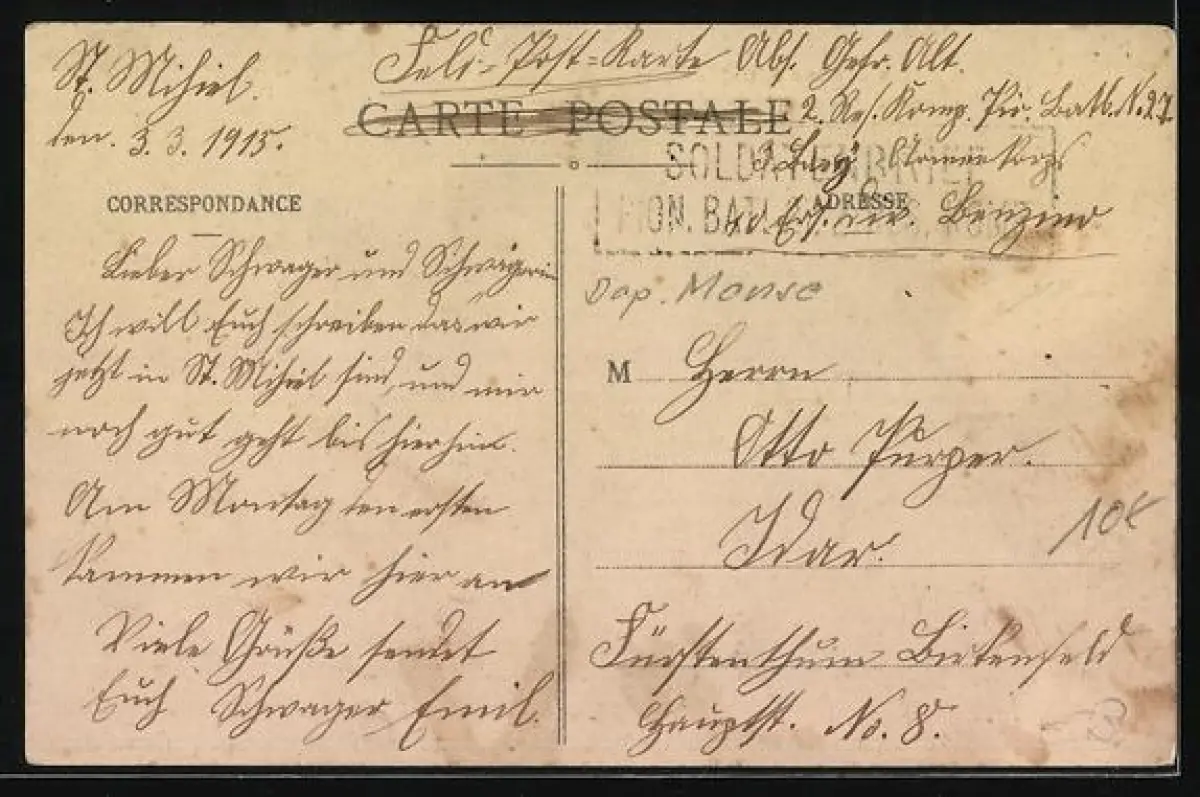 St. Mihiel.
den. 3. 3. 1915.
Feld-Post-Karte Abs. Gefr. Alt.
CARTE POSTALE
2. Res. Komp. Pio. Batl. No. 27.
Armeekorps
SOLDATENBRIEF
PION. BATL.
CORRESPONDANCE
ADRESSE
Lieber Schwager und Schwägerin
Ich will Euch schreiben das wir
jetzt in St. Mihiel sind, und mir
noch gut geht bis hierhin.
Am Montag den ersten
kammen wir hier an
Viele Grüße sendet
Euch Schwager Emil.
Dep. Meuse
M Herrn
Otto Purper.
Idar.
Fürstenthum Birkenfeld
Hauptst. No. 8.
10€